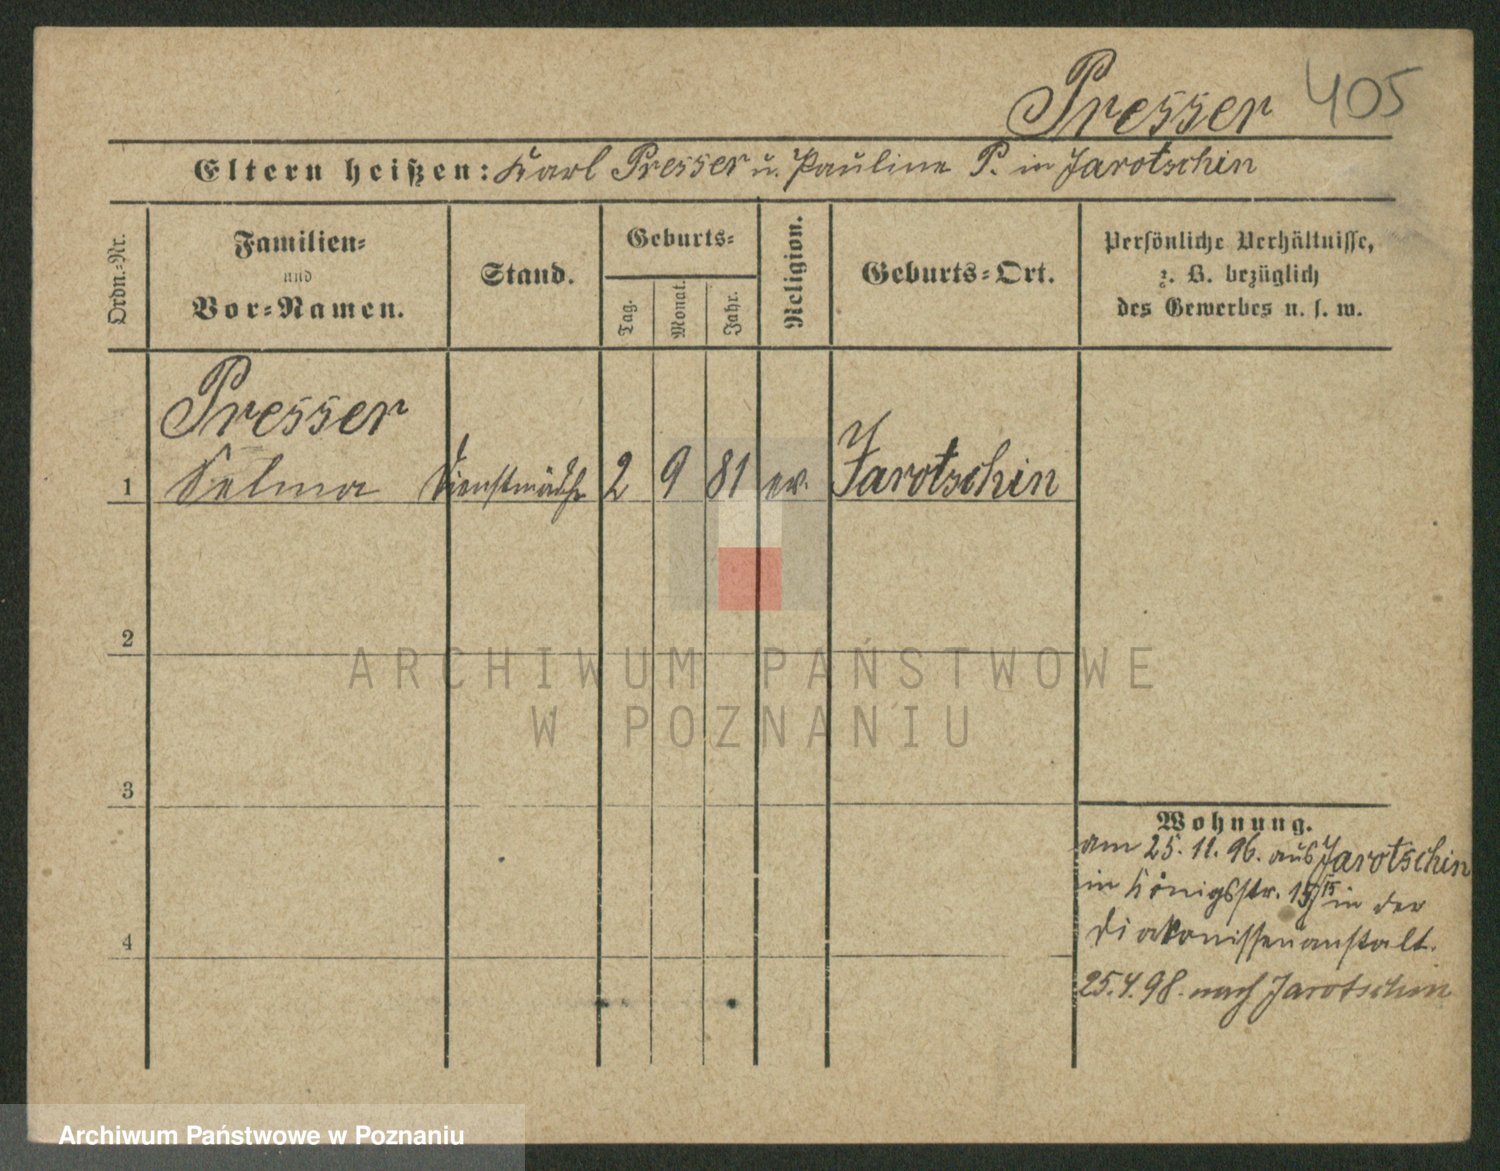 Presser 405
Eltern heißen: Karl Presser u. Pauline P. in Jarotschin
Ordn.-Nr.
Familien-
und
Vor-Namen.
Stand.
Geburts-
Tag.
Monat.
Jahr.
Religion.
Geburts-Ort.
Persönliche Verhältnisse,
z. B. bezüglich
des Gewerbes u. s. w.
Presser
1 Selma Dienstmädch 2 9 81 ev. Jarotschin
2
3
4
Wohnung.
am 25. 11. 96. aus Jarotschin
in Königsstr. 15 in der
Diakonissenanstalt.
25.4.98. nach Jarotschin
ARCHIWUM PAŃSTWOWE
W POZNANIU
Archiwum Państwowe w Poznaniu